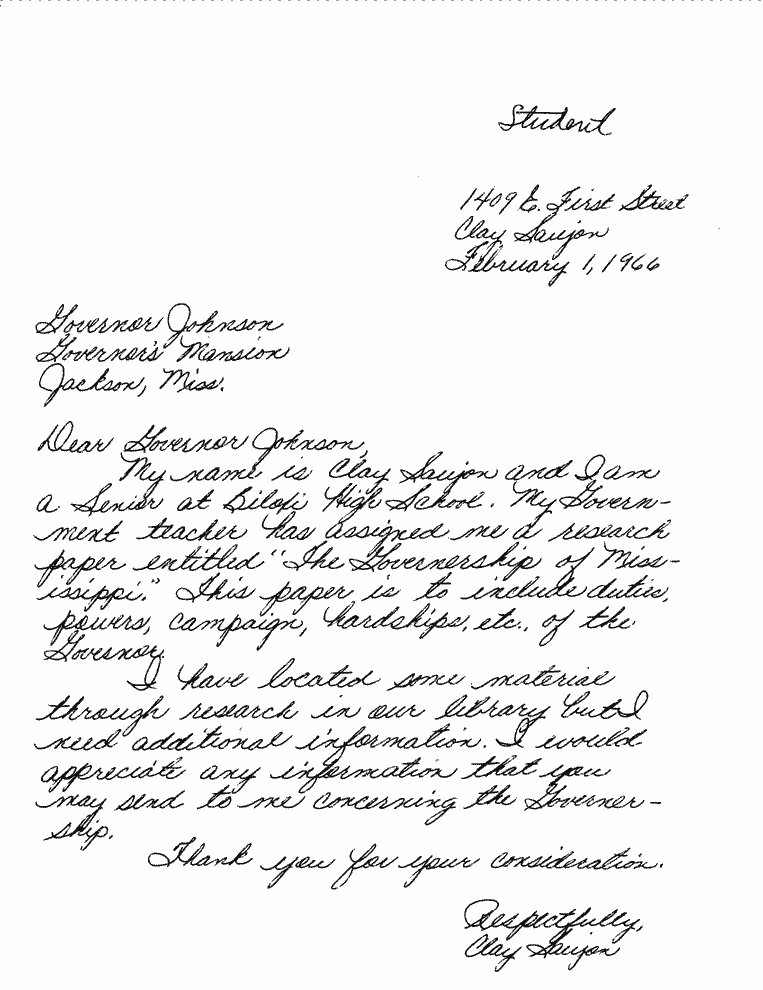 Student
1409 E. First Street
Clay Saujon
February 1, 1966
Governor Johnson
Governor's Mansion
Jackson, Miss.
Dear Governor Johnson,
My name is Clay Saujon and I am
a Senior at Biloxi High School. My Govern-
ment teacher has assigned me a research
paper entitled "The Governership of Miss-
issippi." This paper is to include duties,
powers, campaign, hardships, etc., of the
Governor.
I have located some material
through research in our library but I
need additional information. I would
appreciate any information that you
may send to me concerning the Governer-
ship.
Thank you for your consideration.
Respectfully,
Clay Saujon